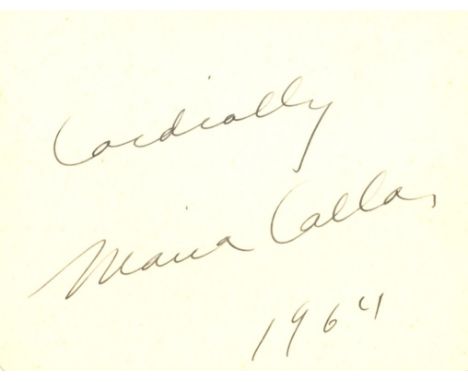 Cordially
Maria Callas
1964